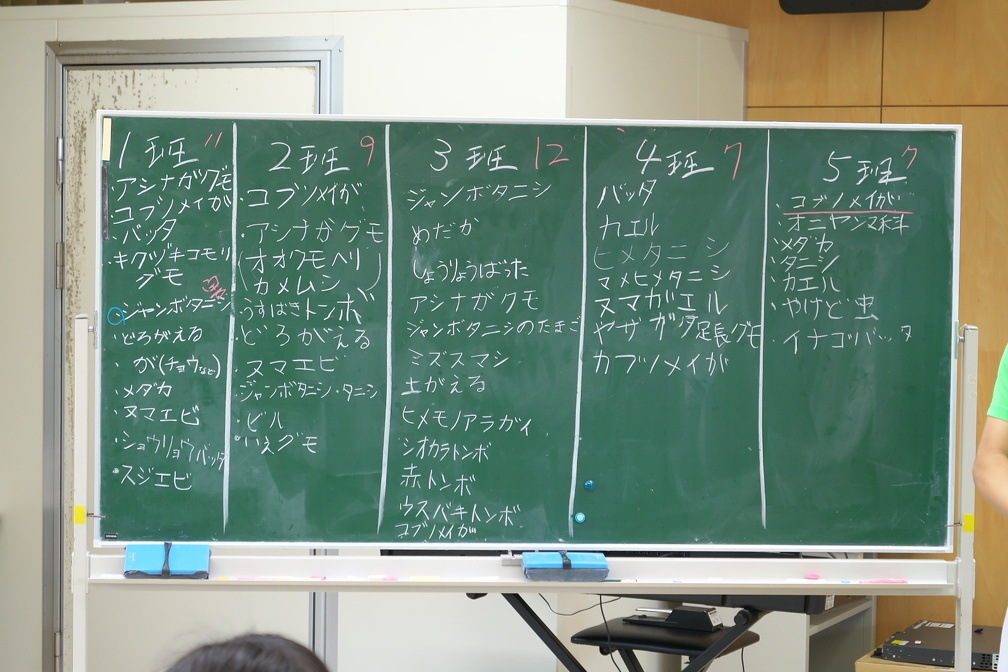 1班 11
・アシナガグモ
・コブノメイガ
・バッタ
・キクヅキコモリ
グモ
・ジャンボタニシ
・どろがえる
・が(チョウなど)
・メダカ
・ヌマエビ
・ショウリョウバッタ
・スジエビ
2班 9
・コブノメイガ
・アシナガグモ
(オオクモヘリ
カメムシ)
・うすばきトンボ
・どろがえる
・ヌマエビ
・ジャンボタニシ・タニシ
・ビル
・いえグモ
3班 12
ジャンボタニシ
めだか
しょうりょうばった
アシナガクモ
ジャンボタニシのたまご
ミズスマシ
土がえる
ヒメモノアラガイ
シオカラトンボ
赤トンボ
ウスバキトンボ
コブノメイガ
4班 7
バッタ
カエル
ヒメタニシ
マメヒメタニシ
ヌマガエル
ヤサガタ足長グモ
カブノメイが
5班 7
・コブノメイガ
・オニヤンマ科
・メダカ
・タニシ
・カエル
・やけど虫
・イナゴバッタ